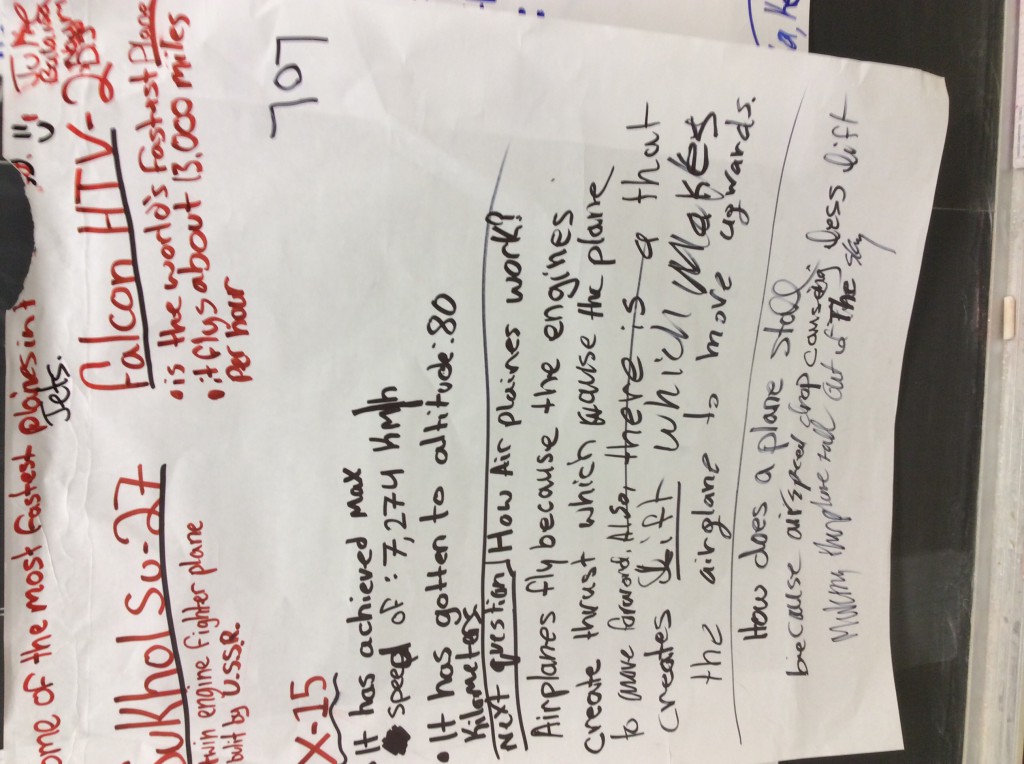 ome of the most fastest plaines in t
Jets.
Falcon HTV-2
• is the world's fastest Plane
• it flys about 13,000 miles
Per hour
ukhoi Su-27
twin engine fighter plane
built by U.S.S.R.
X-15
• It has achieved max
speed of: 7,274 Km/h
• It has gotten to altitude: 80
Kilometers
707
Next question, How Air plaines work?
Airplanes fly because the engines
create thrust which cause the plane
to move forword. Also, there is a that
creates Lift which Makes
the airplane to move upwards.
How does a plane stall
because airspeed drop causing less lift
Making the plane fall out of The sky